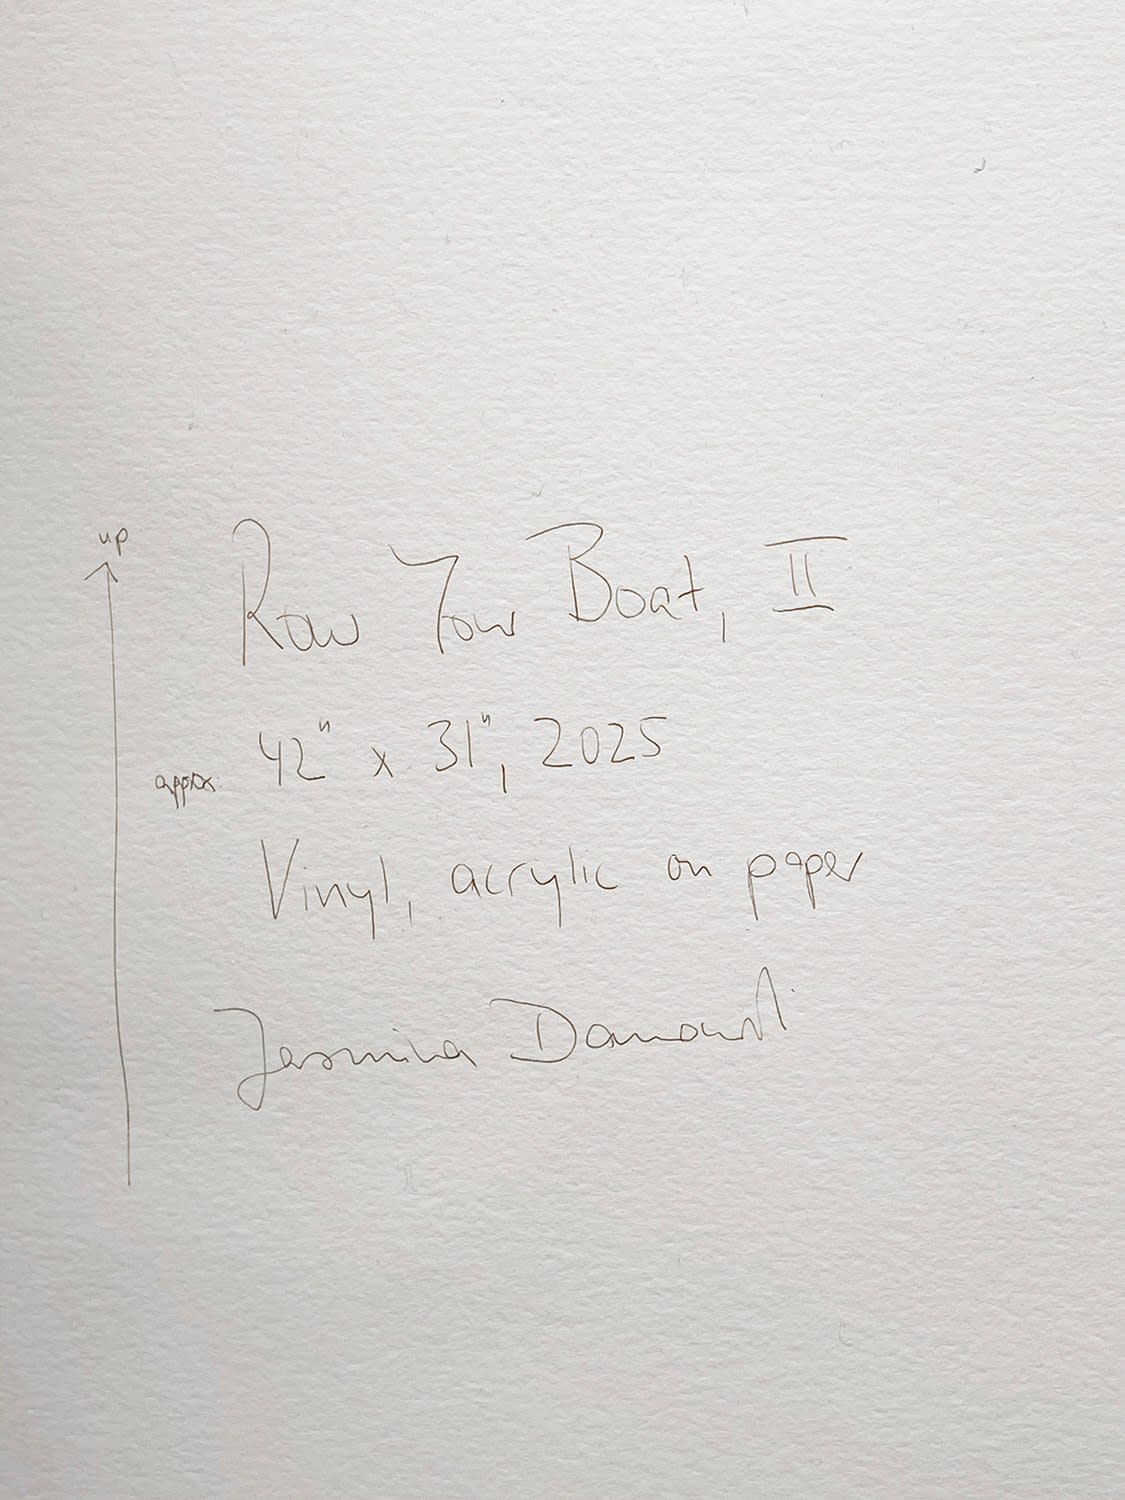 up
Row Your Boat, II
approx. 42" x 31", 2025
Vinyl, acrylic on paper
Jasmina Danowski